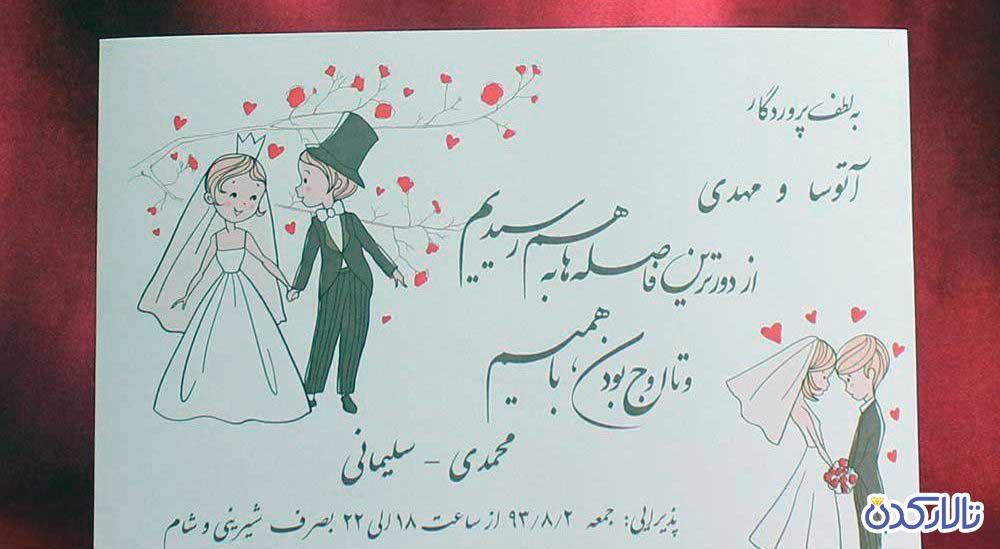 به لطف پروردگار
آتوسا و مهدی
از دورترین فاصله‌ها به هم رسیدیم
و تا اوج بودن، با همیم
محمدی - سلیمانی
پذیرایی: جمعه ۹۳/۸/۲ از ساعت ۱۸ الی ۲۲ بصرف شیرینی و شام
تالارکده